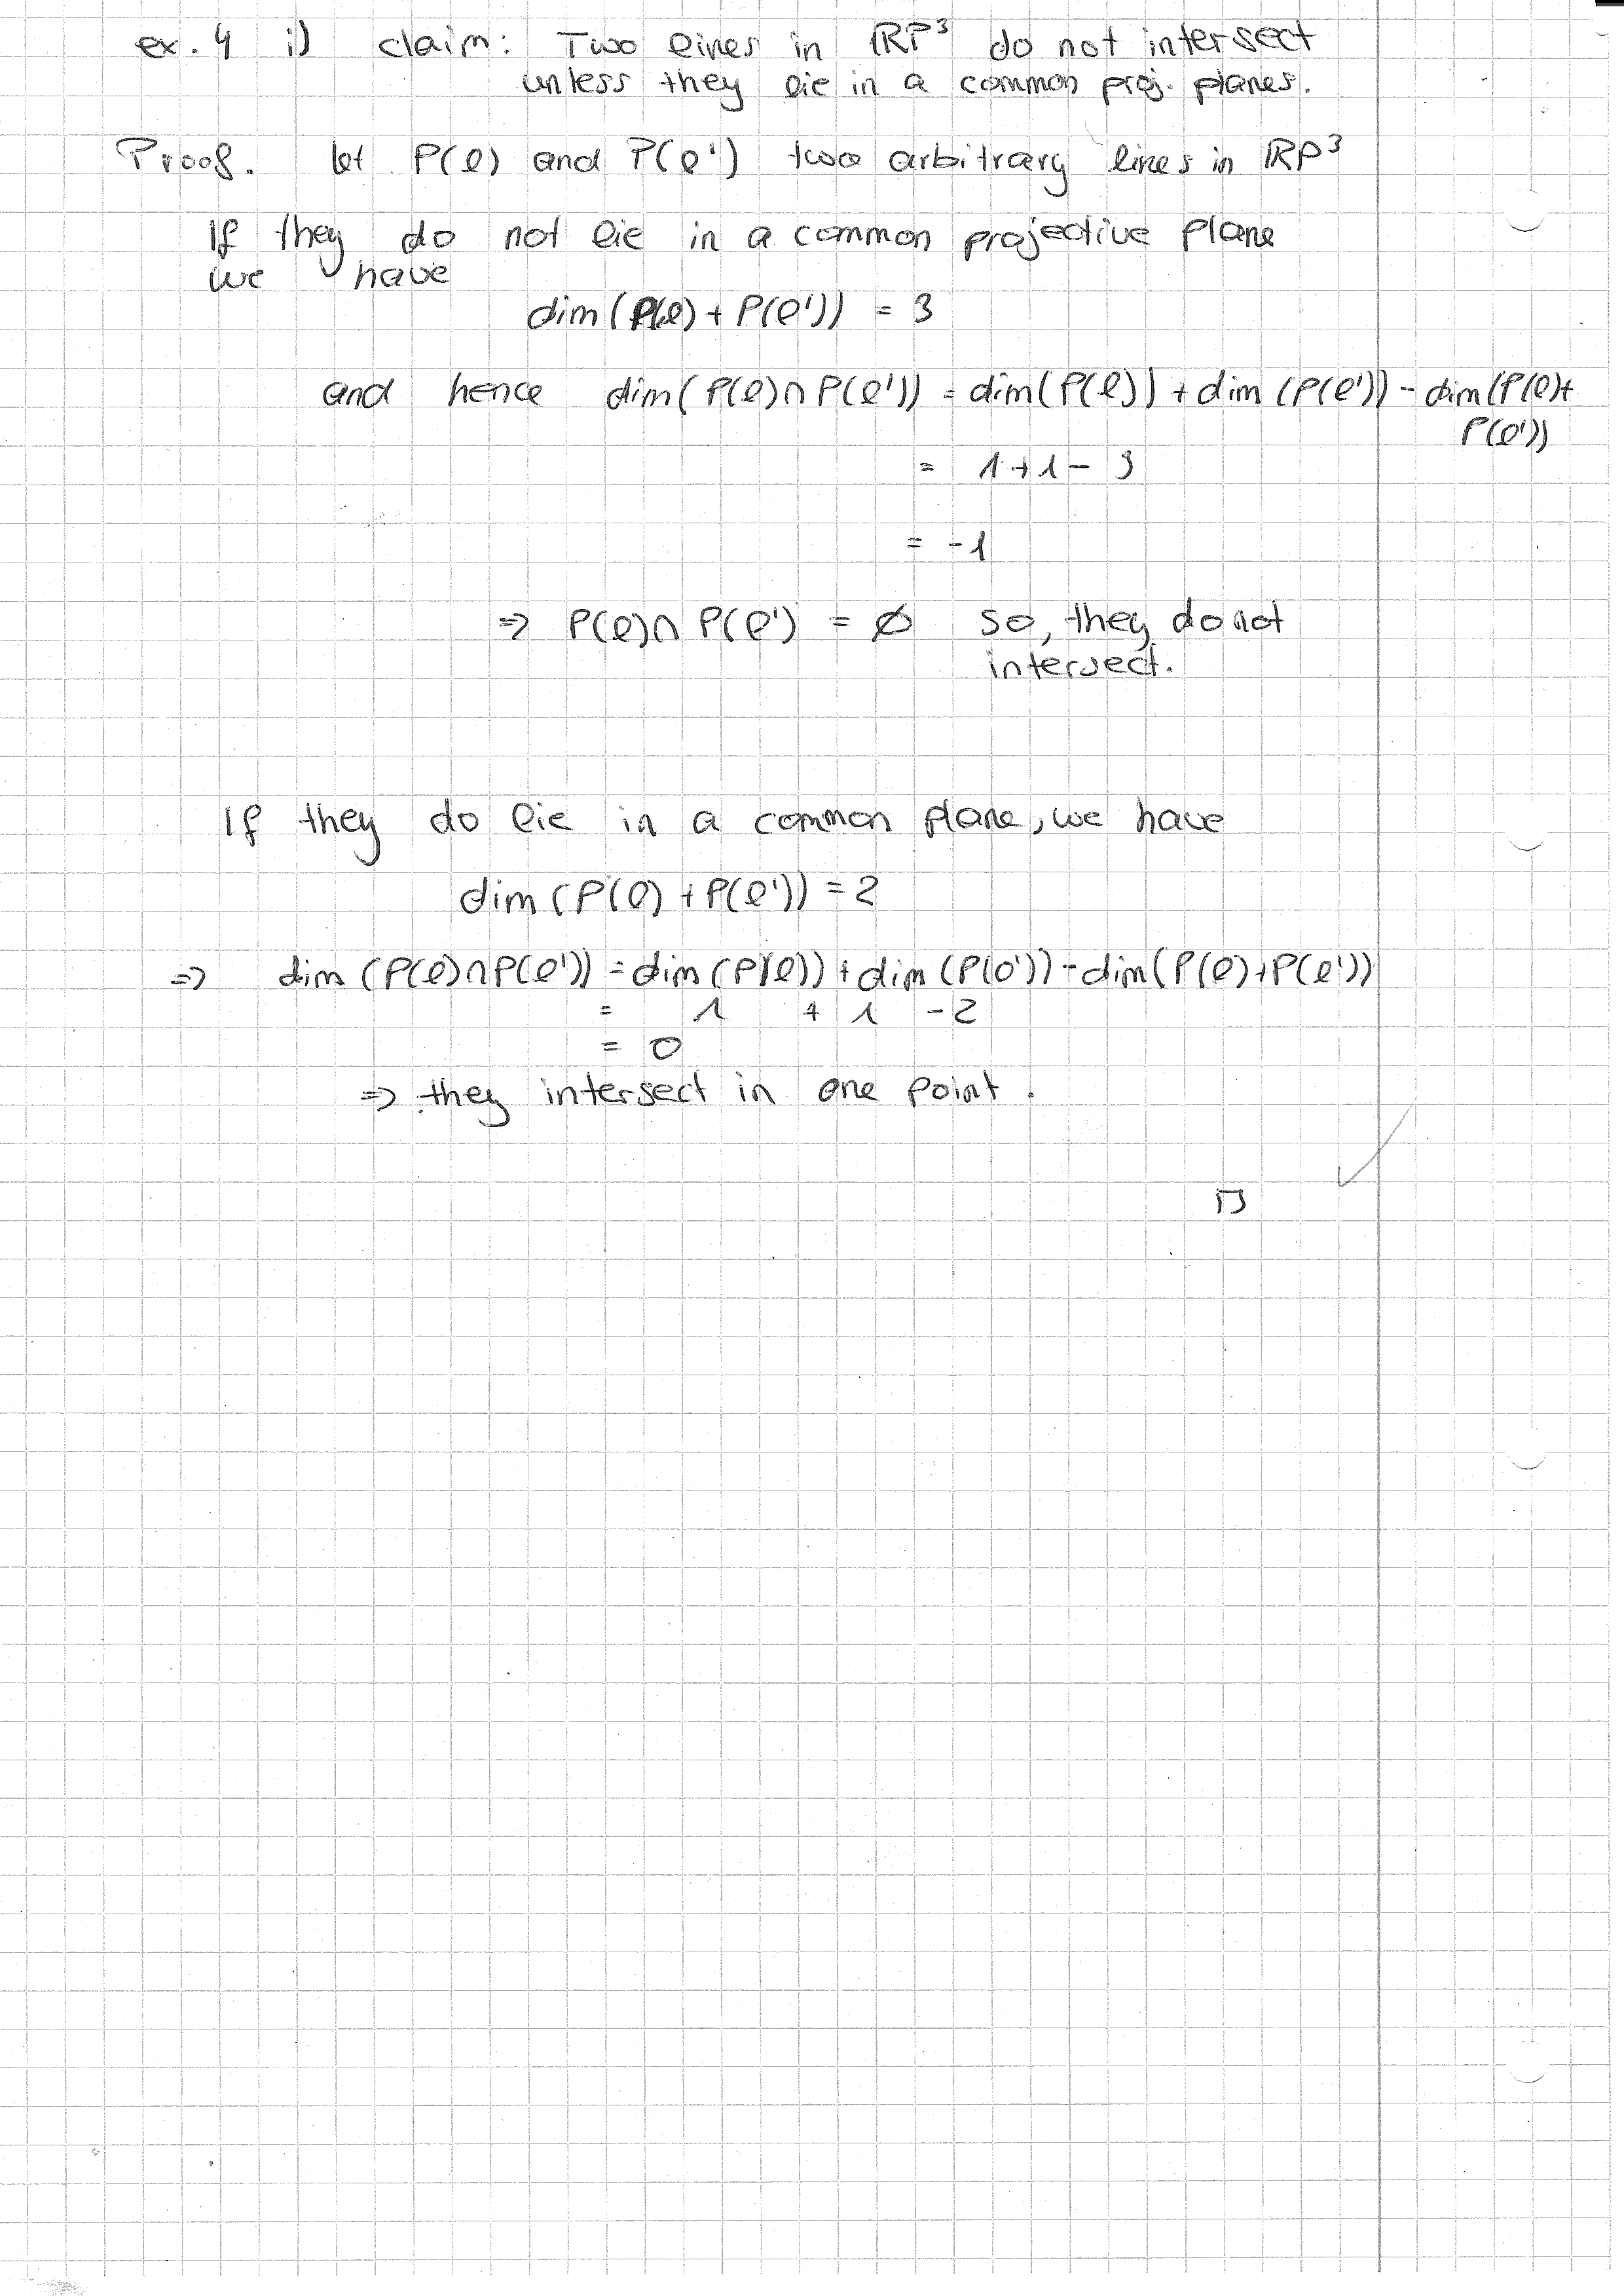 ex. 4 i) claim: Two lines in RP³ do not intersect
unless they lie in a common proj. planes.
Proof. let P(l) and P(l') two arbitrary lines in RP³
If they do not lie in a common projective plane
we have
dim(P(l) + P(l')) = 3
and hence dim(P(l)∩P(l')) = dim(P(l)) + dim(P(l')) - dim(P(l)+
P(l'))
= 1+1-3
= -1
⇒ P(l)∩P(l') = ∅ so, they do not
intersect.
If they do lie in a common plane, we have
dim(P(l) + P(l')) = 2
⇒ dim(P(l)∩P(l')) = dim(P(l)) + dim(P(l')) - dim(P(l)+P(l'))
= 1 + 1 - 2
= 0
⇒ they intersect in one point.
□